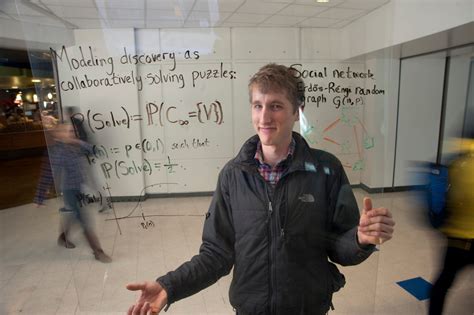 Modeling discovery as
collaboratively solving puzzles:
P(Solve) = P(C∞ = {V})
p ∈ (0,1) such that
P(Solve) = 1/2
Social network
Erdős-Rényi random
graph G(n,p)
THE NORTH FACE